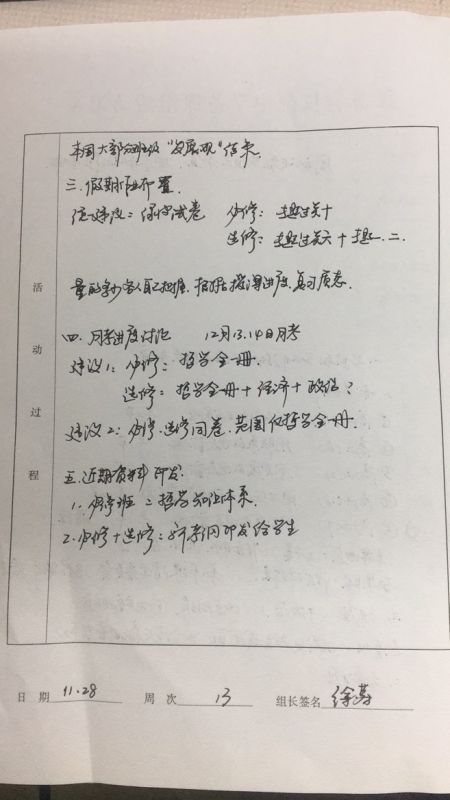 本周大部分班级“发展观”结束.
三.假期作业布置.
统一建议:综合试卷 必修:主题过关十
选修:主题过关六+主题二.
量的多少各人自己把握,根据授课进度、复习质态.
四.月考进度讨论 12月13.14日月考
建议1:必修:哲学全一册.
选修:哲学全册+经济+政治?
建议2:必修.选修同卷.范围仅哲学全一册.
五.近期资料印发:
1.必修班:哲学知识体系.
2.必修+选修:新考纲印发给学生
活动过程
日期 11.28 周次 13 组长签名